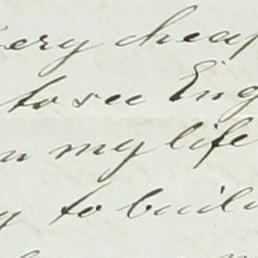 very cheap
to see Eng
in my life
to build